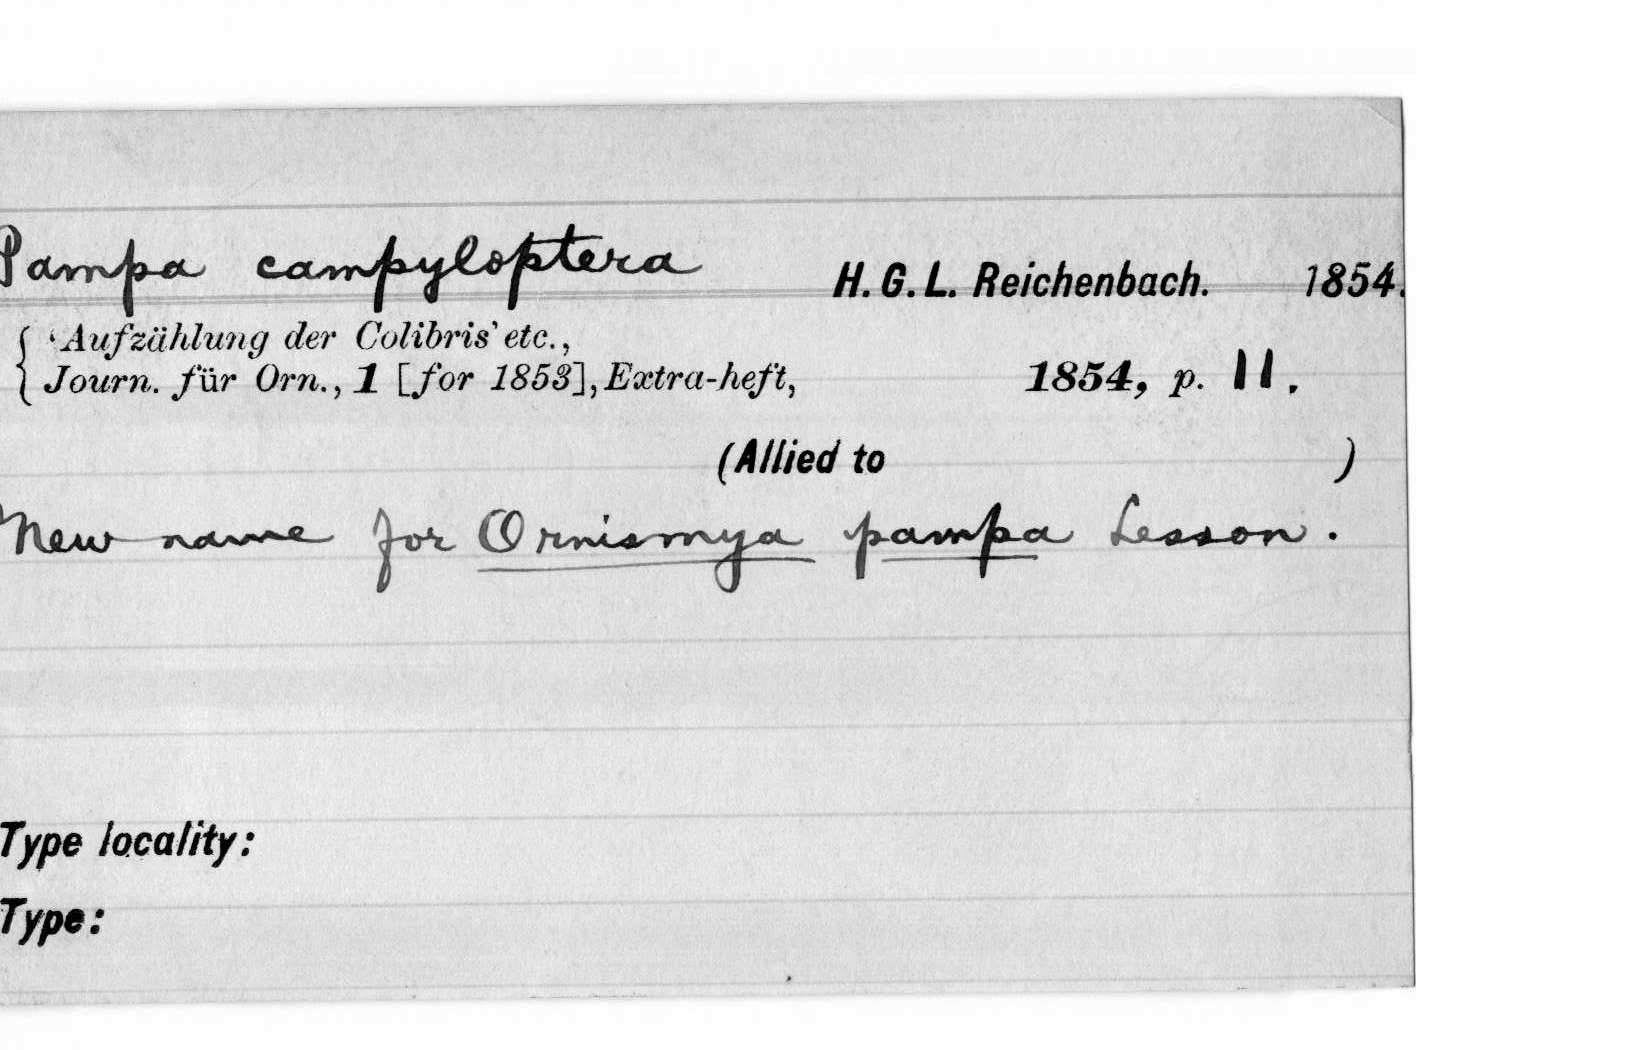 Pampa campyloptera H. G. L. Reichenbach. 1854.
'Aufzählung der Colibris' etc.,
Journ. für Orn., 1 [for 1853], Extra-heft, 1854, p. 11.
(Allied to )
New name for Ornismya pampa Lesson.
Type locality:
Type: